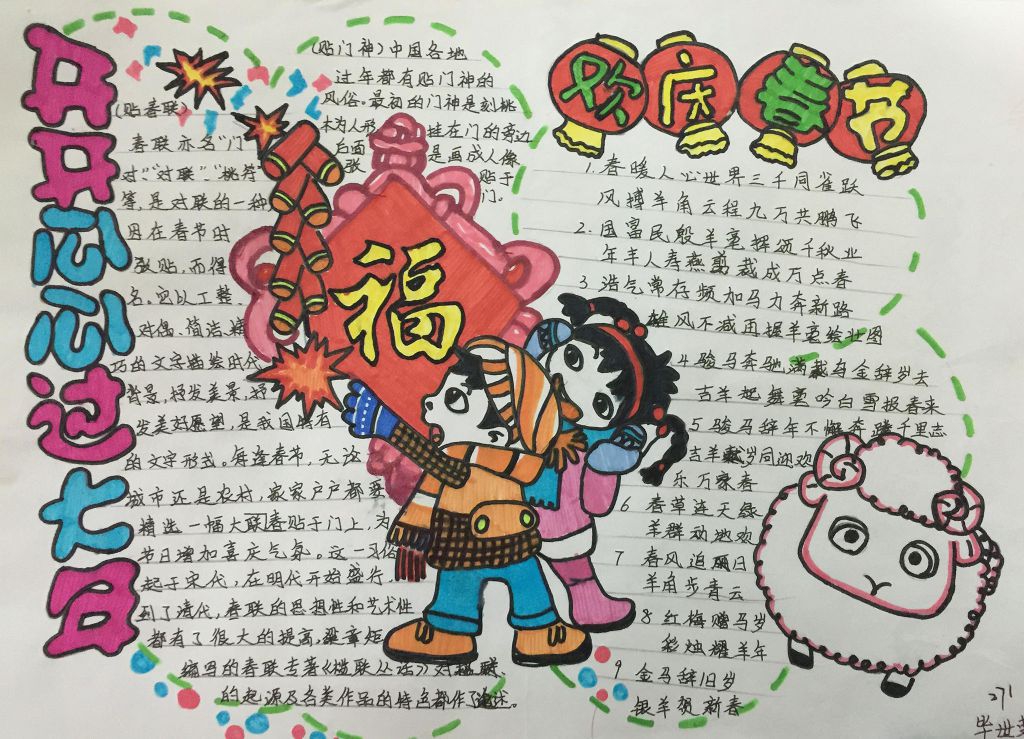 开开心心过大年
(贴春联)
春联亦名"门
对""对联""桃符"
等,是对联的一种
因在春节时
张贴,而得
名。它以工整、
对偶、简洁、精
巧的文字描绘时代
背景,抒发美景,抒
发美好愿望,是我国特有
的文字形式。每逢春节,无论
城市还是农村,家家户户都要
精选一幅大联春贴于门上,为
节日增加喜庆气氛。这一习俗
起于宋代,在明代开始盛行,
到了清代,春联的思想性和艺术性
都有了很大的提高,梁章矩
编写的春联专著《楹联丛话》对楹联
的起源及各类作品的特色都作了论述。
(贴门神)中国各地
过年都有贴门神的
风俗。最初的门神是刻桃
木为人形 挂在门的旁边
后面 是画成人像
张 贴于
门。
福
欢庆春节
1.春暖人心世界三千同雀跃
风搏羊角云程九万共鹏飞
2.国富民殷羊毫挥颂千秋业
年丰人寿燕剪裁成万点春
3 浩气常存频加马力奔新路
雄风不减再握羊毫绘壮图
4 骏马奔驰满载乌金辞岁去
吉羊起舞高吟白雪报春来
5 骏马辞年不懈奔腾千里志
吉羊献岁同迎欢
乐万家春
6 春草连天绿
羊群动地欢
7 春风追丽日
羊角步青云
8 红梅赠马岁
彩灿耀羊年
9 金马辞旧岁
银羊贺新春
271
毕世